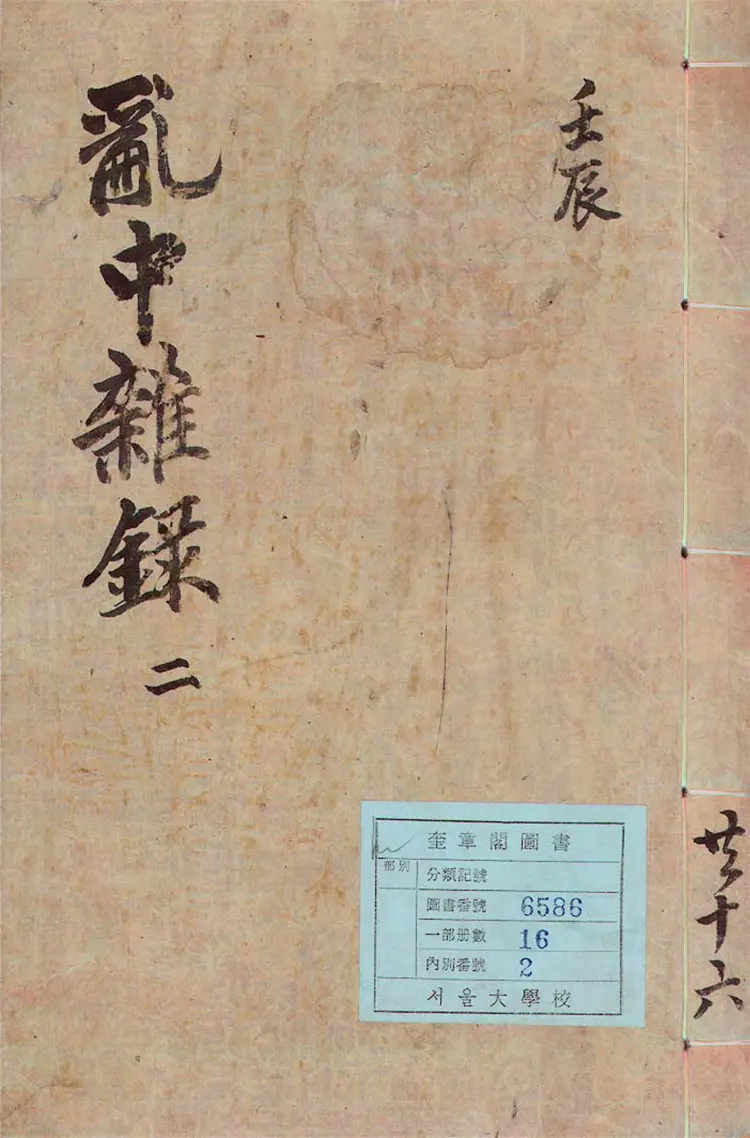 共十六
壬辰
亂中雜錄 二
奎章閣圖書
部別
分類記號
圖書番號 6586
一部册數 16
內別番號 2
서울大學校